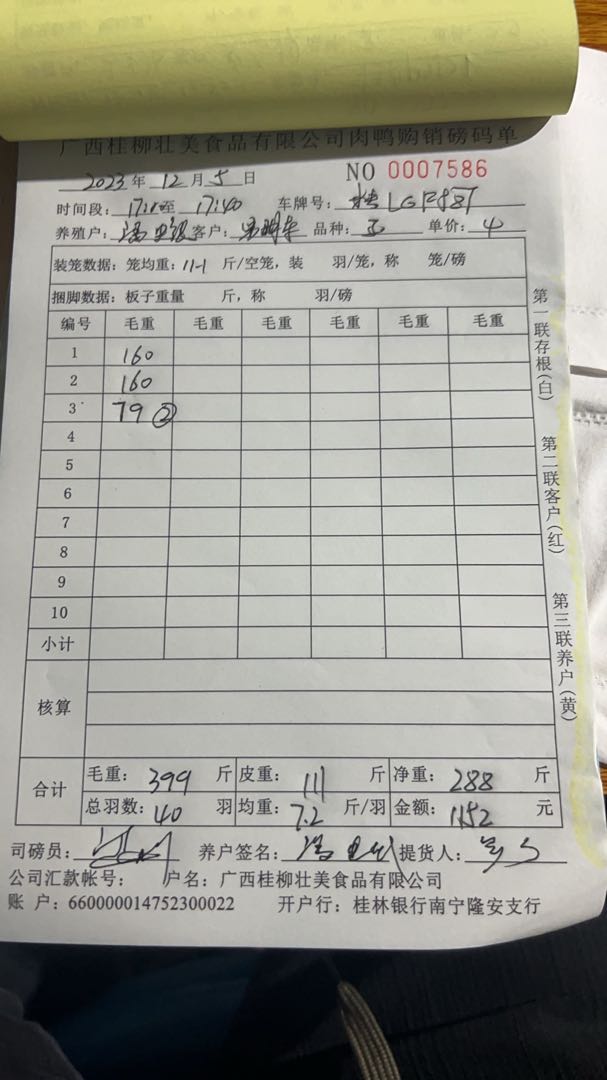 广西桂柳壮美食品有限公司肉鸭购销磅码单
2023年 12月 5日 NO 0007586
时间段: 至 17:40 车牌号:
养殖户: 客户: 品种: 单价: 4
装笼数据: 笼均重: 11.1 斤/空笼, 装 羽/笼, 称 笼/磅
捆脚数据: 板子重量 斤, 称 羽/磅
编号 毛重 毛重 毛重 毛重 毛重 毛重
1 160
2 160
3 79 ②
4
5
6
7
8
9
10
小计
核算
合计 毛重: 399 斤 皮重: 111 斤 净重: 288 斤
总羽数: 40 羽 均重: 7.2 斤/羽 金额: 1152 元
司磅员: 养户签名: 提货人:
公司汇款帐号: 户名: 广西桂柳壮美食品有限公司
账 户: 660000014752300022 开户行: 桂林银行南宁隆安支行
第一联存根(白)
第二联客户(红)
第三联养户(黄)